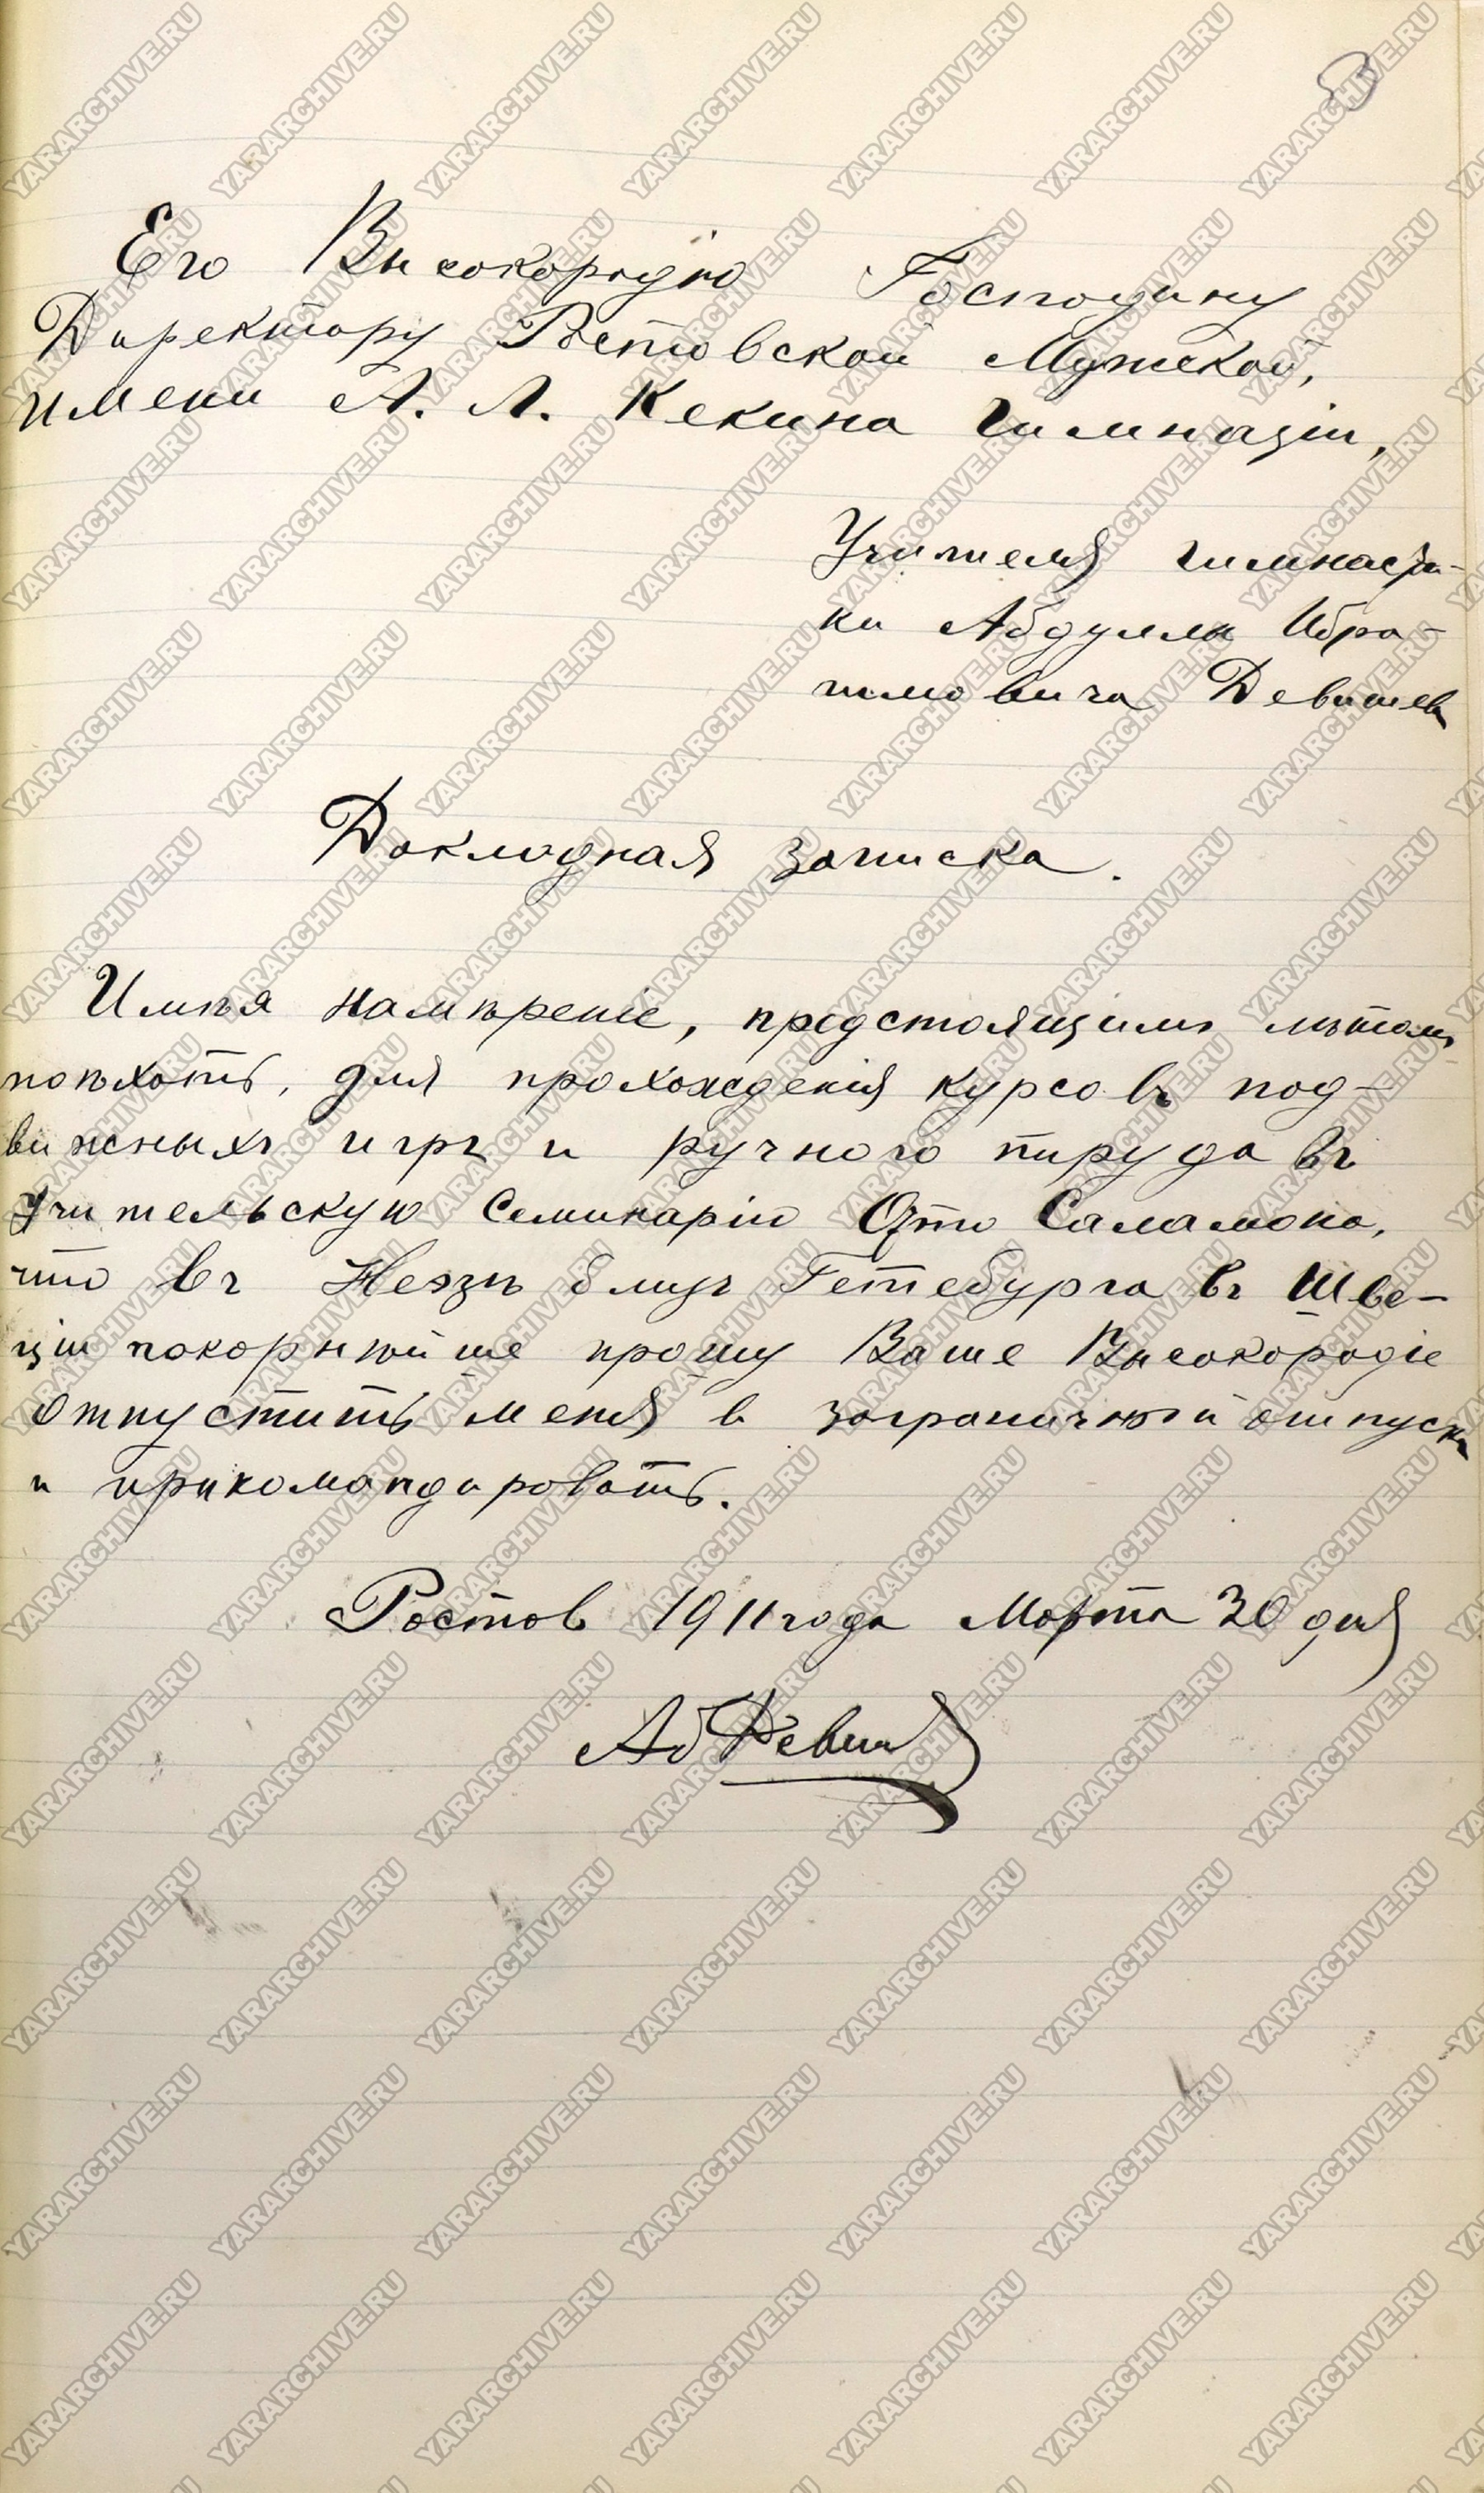 8
Его Высокородію Господину
Директору Ростовской Мужской,
имени А. Л. Кекина гимназіи,
Учителя гимнасти-
ки Абдуллы Ибра-
гимовича Девишева
Докладная записка.
Имѣя намѣреніе, предстоящимъ лѣтомъ
поѣхать, для прохожденія курсовъ под-
вижныхъ игръ и ручного труда въ
Учительскую Семинарію Отто Саламона,
что въ Неэзъ близъ Гетебурга въ Шве-
ціи покорнѣйше прошу Ваше Высокородіе
отпустить меня в заграничный отпускъ
и прикомандировать.
Ростов 1911 года Марта 30 дня
Аб Девиш